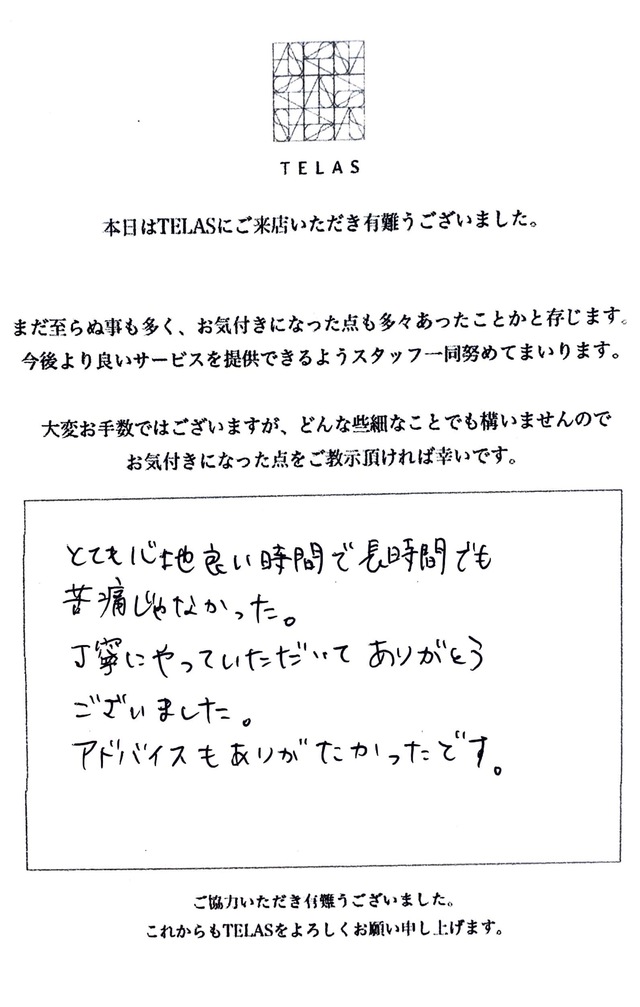 TELAS
本日はTELASにご来店いただき有難うございました。
まだ至らぬ事も多く、お気付きになった点も多々あったことかと存じます。
今後より良いサービスを提供できるようスタッフ一同努めてまいります。
大変お手数ではございますが、どんな些細なことでも構いませんので
お気付きになった点をご教示頂ければ幸いです。
とても心地良い時間で長時間でも
苦痛じゃなかった。
丁寧にやっていただいて ありがとう
ございました。
アドバイスもありがたかったです。
ご協力いただき有難うございました。
これからもTELASをよろしくお願い申し上げます。